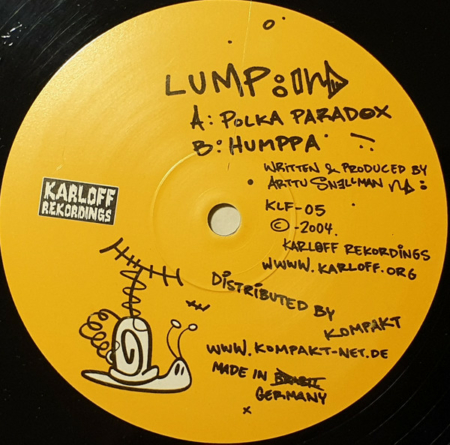 LUMP:
A: POLKA PARADOX
B: HUMPPA
WRITTEN & PRODUCED BY
ARTTU SNELLMAN
KARLOFF
REKORDINGS
KLF-05
© -2004.
KARLOFF REKORDINGS
WWWW.KARLOFF.ORG
DISTRIBUTED BY
KOMPAKT
WWW.KOMPAKT-NET.DE
MADE IN BRASIL
GERMANY